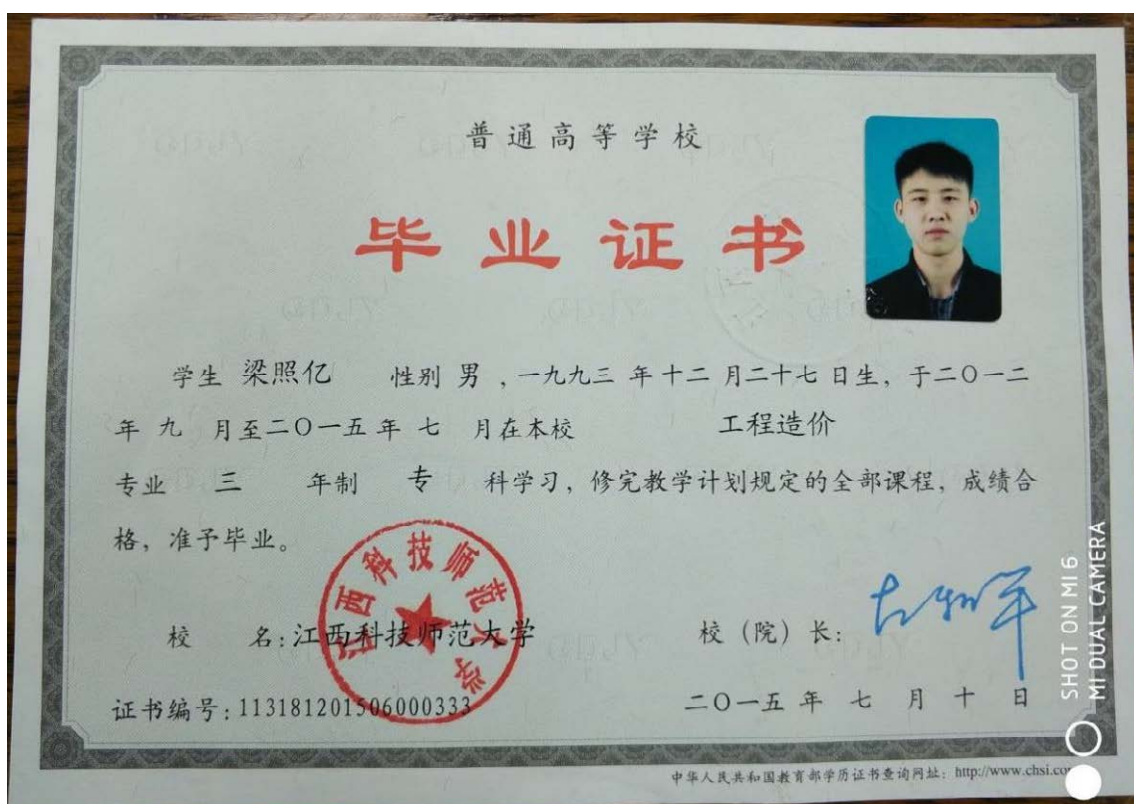 普通高等学校
毕业证书
学生 梁照亿 性别 男 ，一九九三 年十二 月二十七 日生，于二〇一二
年 九 月至二〇一五年 七 月在本校 工程造价
专业 三 年制 专 科学习，修完教学计划规定的全部课程，成绩合
格，准予毕业。
江西科技师范大学
校 名：江西科技师范大学
校（院）长：
证书编号：113181201506000333
二〇一五 年 七 月 十 日
中华人民共和国教育部学历证书查询网址：http://www.chsi.co
SHOT ON MI 6
MI DUAL CAMERA